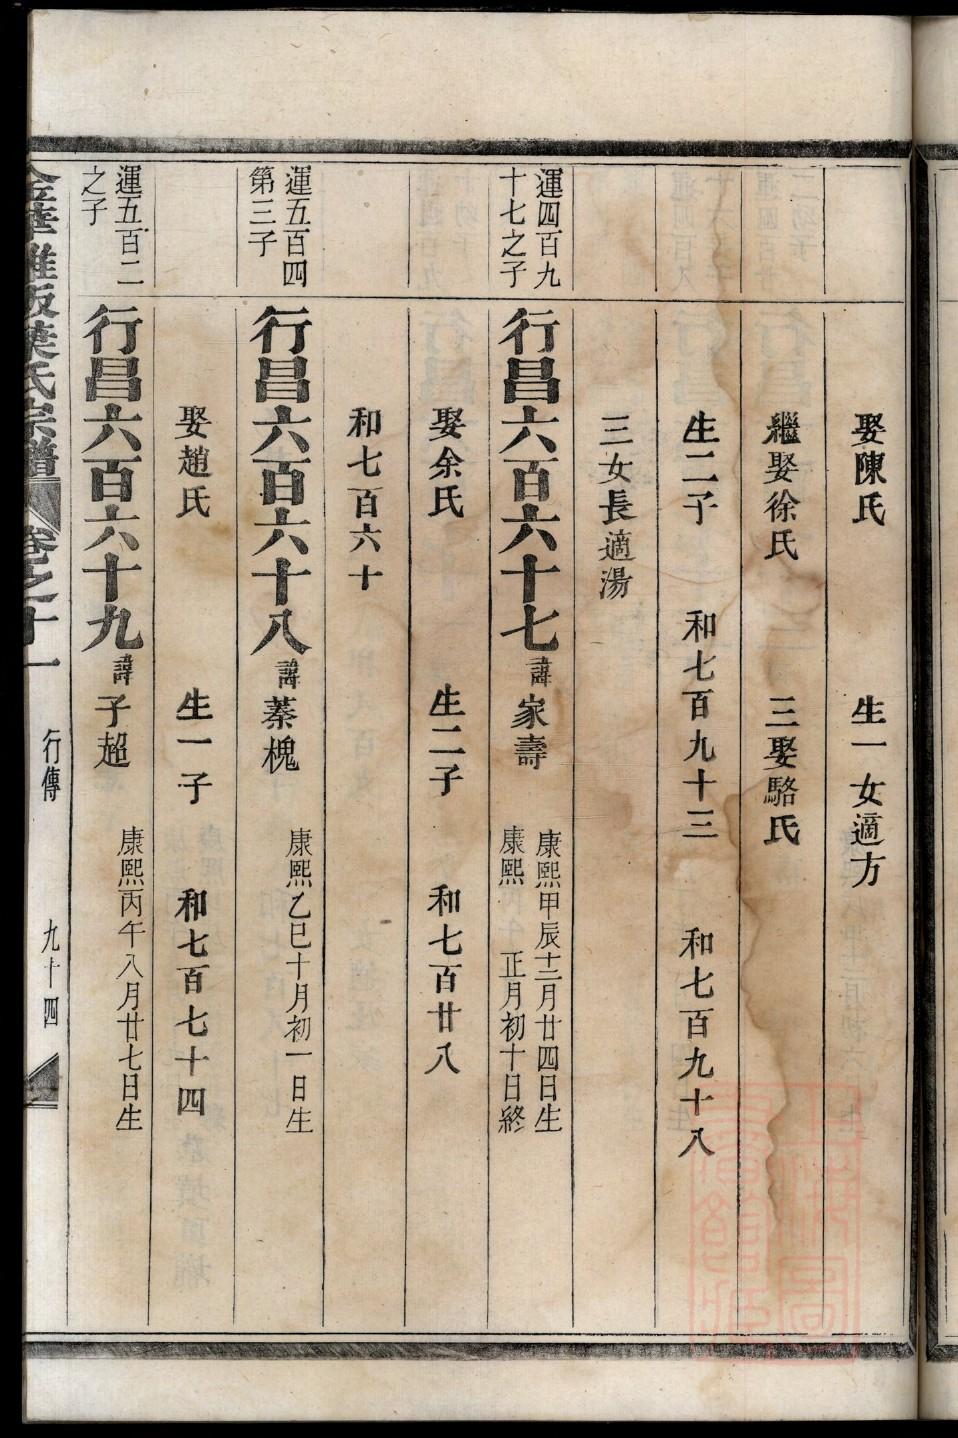 娶陳氏 生一女適方
繼娶徐氏 三娶駱氏
生二子 和七百九十三 和七百九十八
三女長適湯
運四百九
十七之子
行昌六百六十七 諱家壽
康熙甲辰十二月廿四日生
康熙 正月初十日終
娶余氏 生二子 和七百廿八
和七百六十
運五百四
第三子
行昌六百六十八 諱蓁槐
康熙乙巳十月初一日生
娶趙氏 生一子 和七百七十四
運五百二
之子
行昌六百六十九 諱子超
康熙丙午八月廿七日生
金華 氏宗譜 卷之十一 行傳 九十四